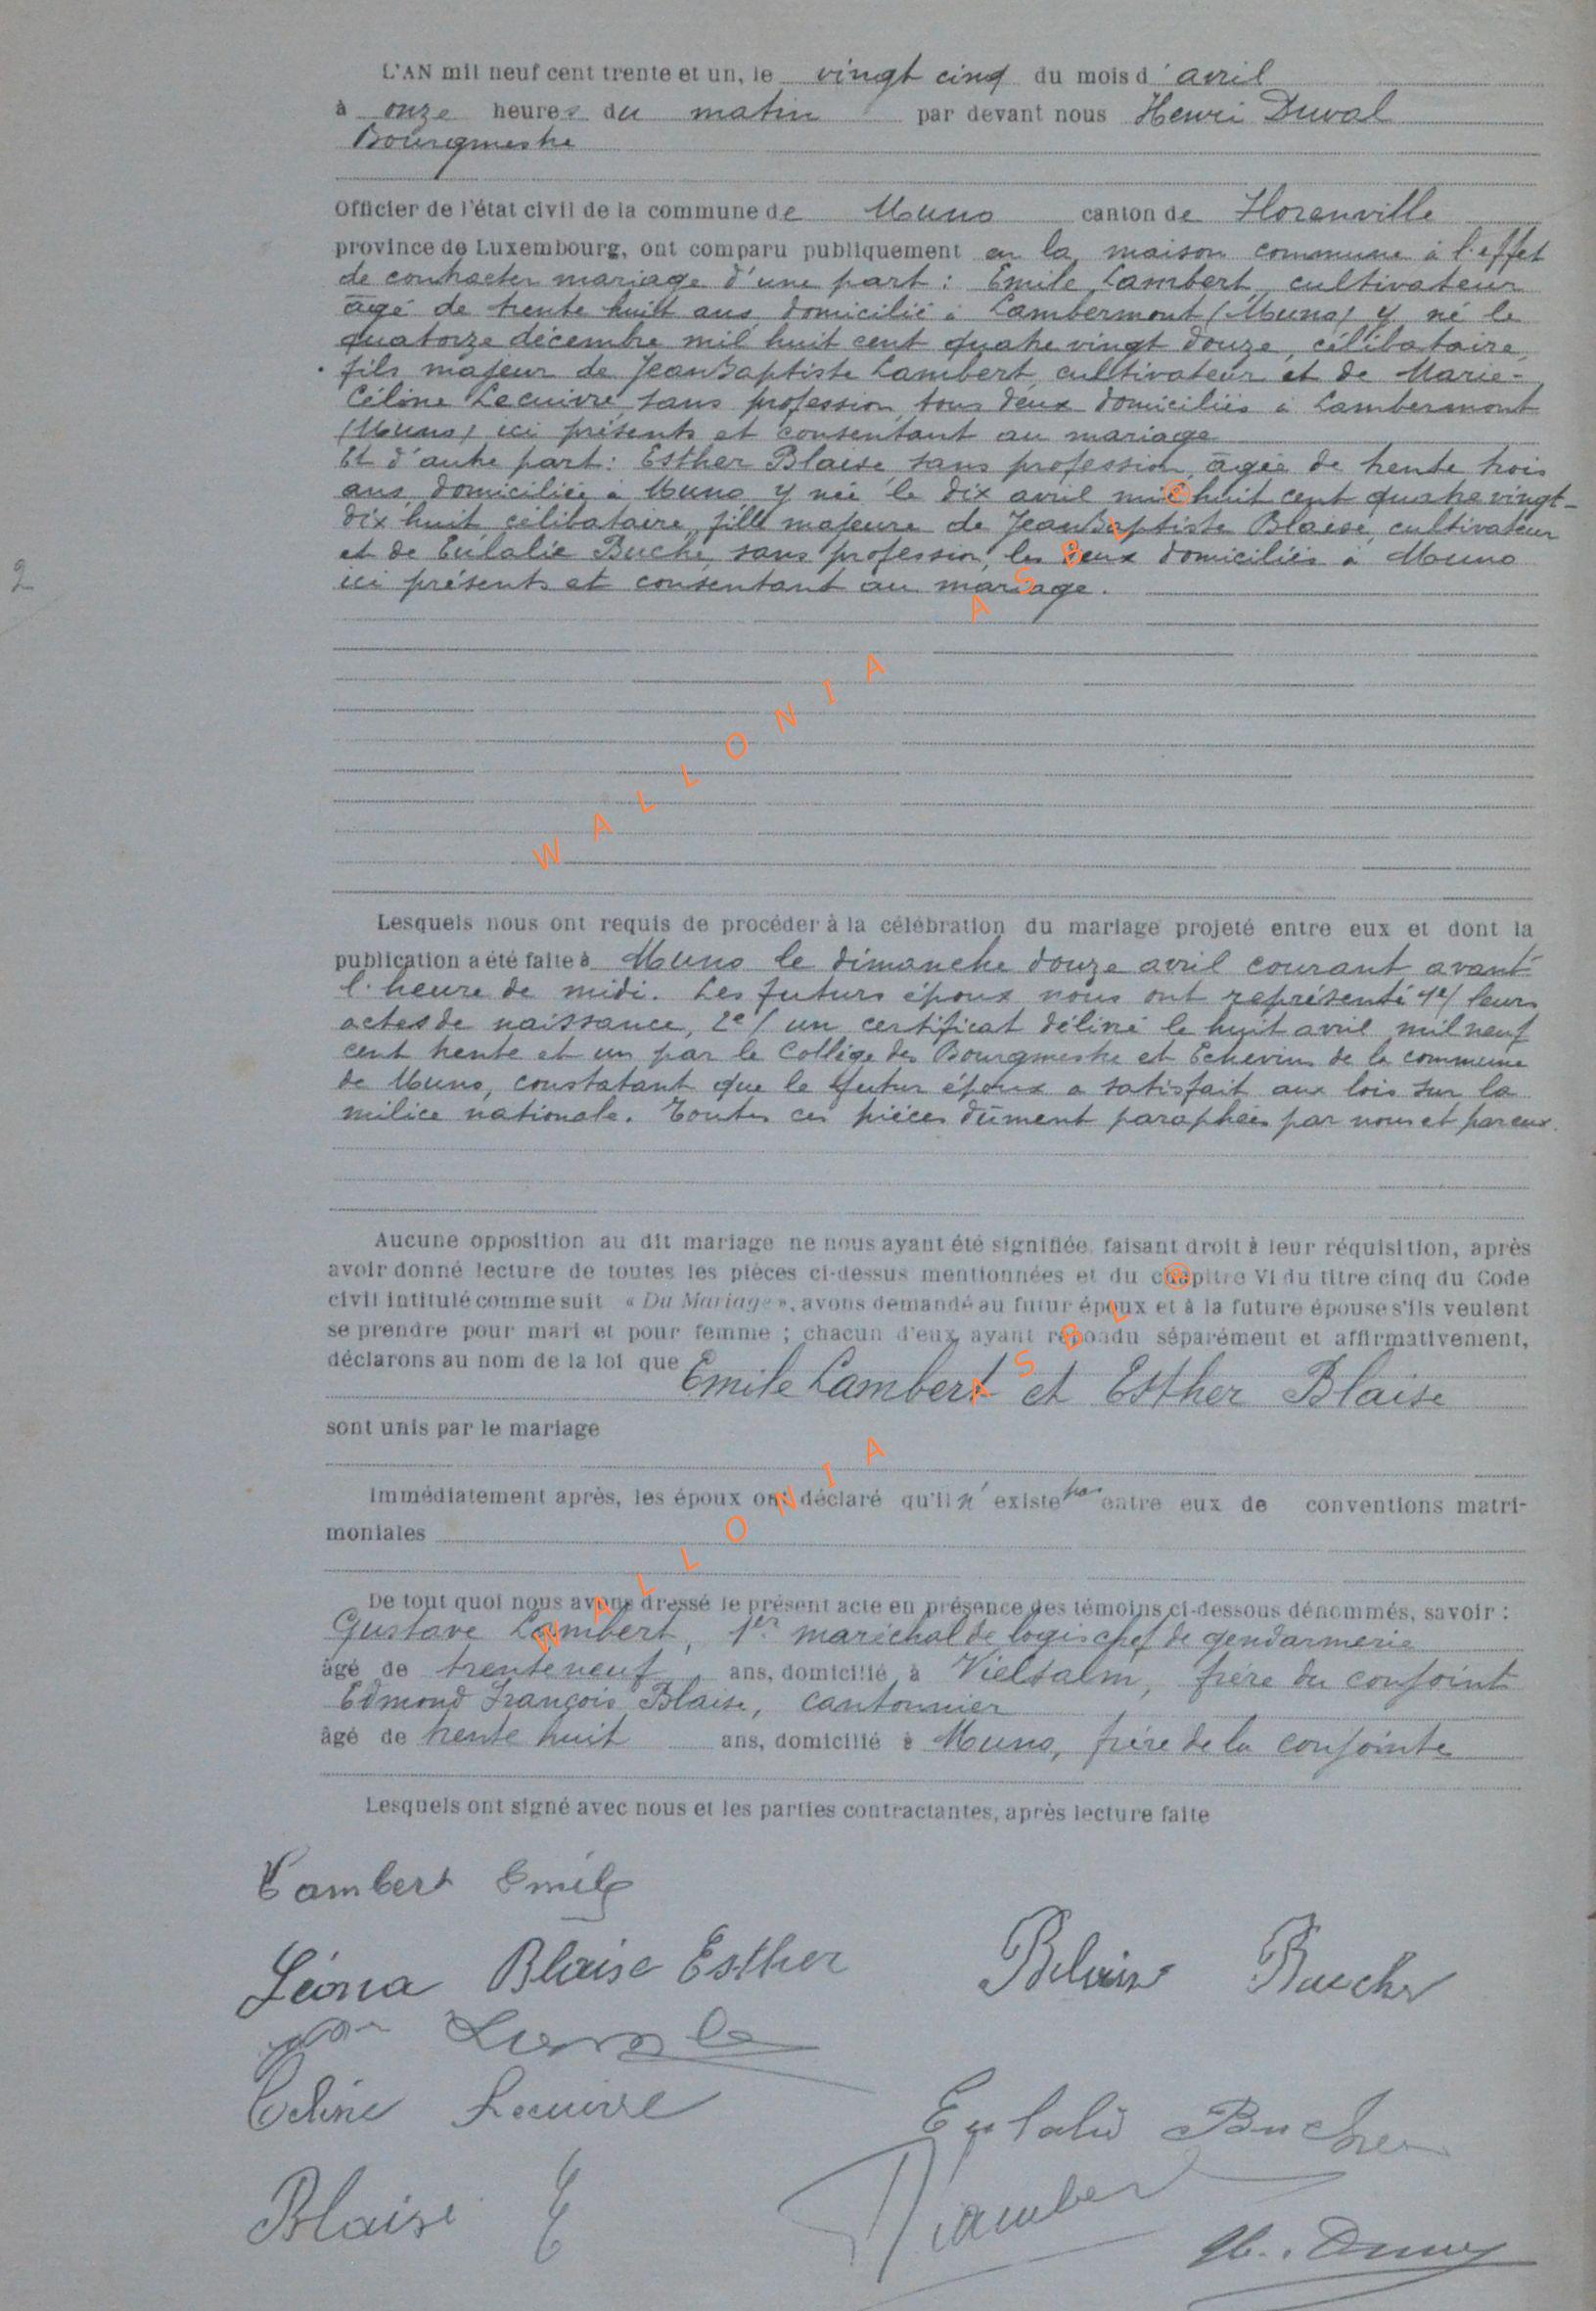 L'AN mil neuf cent trente et un, le vingt cinq du mois d'avril
à onze heures du matin par devant nous Henri Duval
Bourgmestre
Officier de l'état civil de la commune de Muno canton de Florenville
province de Luxembourg, ont comparu publiquement en la maison commune à l'effet
de contracter mariage d'une part : Emile Lambert, cultivateur
âgé de trente huit ans, domicilié à Lambermont (Muno) y né le
quatorze décembre mil huit cent quatre vingt douze, célibataire,
fils majeur de Jean Baptiste Lambert, cultivateur et de Marie-
Céline Lecuivre, sans profession, tous deux domiciliés à Lambermont
(Muno) ici présents et consentant au mariage
Et d'autre part : Esther Blaise, sans profession, âgée de trente trois
ans, domiciliée à Muno y née le dix avril mil huit cent quatre vingt-
dix huit, célibataire, fille majeure de Jean Baptiste Blaise, cultivateur
et de Eulalie Buché, sans profession, les deux domiciliés à Muno
ici présents et consentant au mariage.
WALLONIA ASBL ®
Lesquels nous ont requis de procéder à la célébration du mariage projeté entre eux et dont la
publication a été faite à Muno le dimanche douze avril courant avant
l'heure de midi. Les futurs époux nous ont représenté 1e/ leurs
actes de naissance, 2e/ un certificat délivré le huit avril mil neuf
cent trente et un par le Collège des Bourgmestre et Echevins de la commune
de Muno, constatant que le futur époux a satisfait aux lois sur la
milice nationale. Toutes ces pièces dûment paraphées par nous et par eux.
Aucune opposition au dit mariage ne nous ayant été signifiée, faisant droit à leur réquisition, après
avoir donné lecture de toutes les pièces ci-dessus mentionnées et du chapitre VI du titre cinq du Code
civil intitulé comme suit « Du Mariage », avons demandé au futur époux et à la future épouse s'ils veulent
se prendre pour mari et pour femme ; chacun d'eux ayant répondu séparément et affirmativement,
déclarons au nom de la loi que Emile Lambert et Esther Blaise
sont unis par le mariage
WALLONIA ASBL ®
Immédiatement après, les époux ont déclaré qu'il n'existe pas entre eux de conventions matri-
moniales
De tout quoi nous avons dressé le présent acte en présence des témoins ci-dessous dénommés, savoir :
Gustave Lambert, 1er maréchal de logis chef de gendarmerie
âgé de trente neuf ans, domicilié à Vielsalm, frère du conjoint
Edmond François Blaise, cantonnier
âgé de trente huit ans, domicilié à Muno, frère de la conjointe
Lesquels ont signé avec nous et les parties contractantes, après lecture faite
Lambert Emile
Léona Blaise Esther Blaise Buche
Céline Lecuivre
Eulalie Buche
Blaise E
Lambert
H. Duval
2